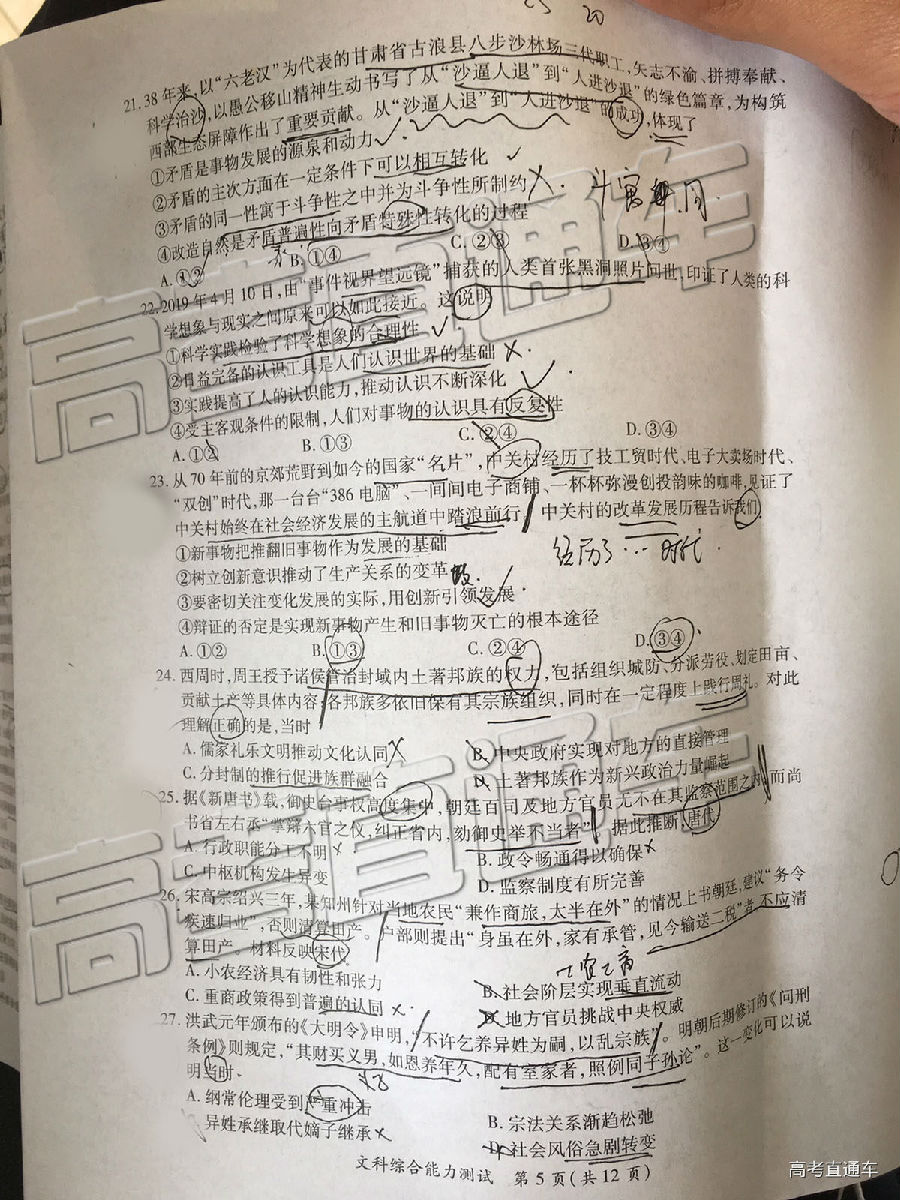 23 20
21.38年来,以“六老汉”为代表的甘肃省古浪县八步沙林场三代职工,矢志不渝、拼搏奉献、
科学治沙,以愚公移山精神生动书写了从“沙逼人退”到“人进沙退”的绿色篇章,为构筑
西部生态屏障作出了重要贡献。从“沙逼人退”到“人进沙退”的成功,体现了
①矛盾是事物发展的源泉和动力
②矛盾的主次方面在一定条件下可以相互转化
③矛盾的同一性寓于斗争性之中并为斗争性所制约
④改造自然是矛盾普遍性向矛盾特殊性转化的过程
A.①② B.①④ C.②③ D.③④
22.2019年4月10日,由“事件视界望远镜”捕获的人类首张黑洞照片问世,印证了人类的科
学想象与现实之间原来可以如此接近。这说明
①科学实践检验了科学想象的合理性
②日益完备的认识工具是人们认识世界的基础
③实践提高了人的认识能力,推动认识不断深化
④受主客观条件的限制,人们对事物的认识具有反复性
A.①② B.①③ C.②④ D.③④
23.从70年前的京郊荒野到如今的国家“名片”,中关村经历了技工贸时代、电子大卖场时代、
“双创”时代,那一台台“386电脑”、一间间电子商铺、一杯杯弥漫创投韵味的咖啡,见证了
中关村始终在社会经济发展的主航道中踏浪前行。中关村的改革发展历程告诉我们
①新事物把推翻旧事物作为发展的基础
经历了…时代.
②树立创新意识推动了生产关系的变革
③要密切关注变化发展的实际,用创新引领发展
④辩证的否定是实现新事物产生和旧事物灭亡的根本途径
A.①② B.①③ C.②④ D.③④
24.西周时,周王授予诸侯管治封域内土著邦族的权力,包括组织城防、分派劳役、划定田亩、
贡献土产等具体内容;各邦族多依旧保有其宗族组织,同时在一定程度上践行周礼。对此
理解正确的是,当时
A.儒家礼乐文明推动文化认同 B.中央政府实现对地方的直接管理
C.分封制的推行促进族群融合 D.土著邦族作为新兴政治力量崛起
25.据《新唐书》载,御史台事权高度集中,朝廷百司及地方官员无不在其监察范围之列,而尚
书省左右丞“掌辩六官之仪,纠正省内,劾御史举不当者”。据此推断,唐代
A.行政职能分工不明 B.政令畅通得以确保
C.中枢机构发生异变 D.监察制度有所完善
26.宋高宗绍兴三年,某知州针对当地农民“兼作商旅,太半在外”的情况上书朝廷,建议“务令
疾速归业”,否则清算田产。户部则提出“身虽在外,家有承管,见今输送二税”者,不应清
算田产。材料反映宋代
A.小农经济具有韧性和张力 B.社会阶层实现垂直流动
C.重商政策得到普遍的认同 D.地方官员挑战中央权威
27.洪武元年颁布的《大明令》申明,“不许乞养异姓为嗣,以乱宗族”。明朝后期修订的《问刑
条例》则规定,“其财买义男,如恩养年久,配有室家者,照例同子孙论”。这一变化可以说
明当时
A.纲常伦理受到严重冲击 B.宗法关系渐趋松弛
异姓承继取代嫡子继承 D.社会风俗急剧转变
文科综合能力测试 第5页(共12页)
高考直通车
高考直通车
高考直通车